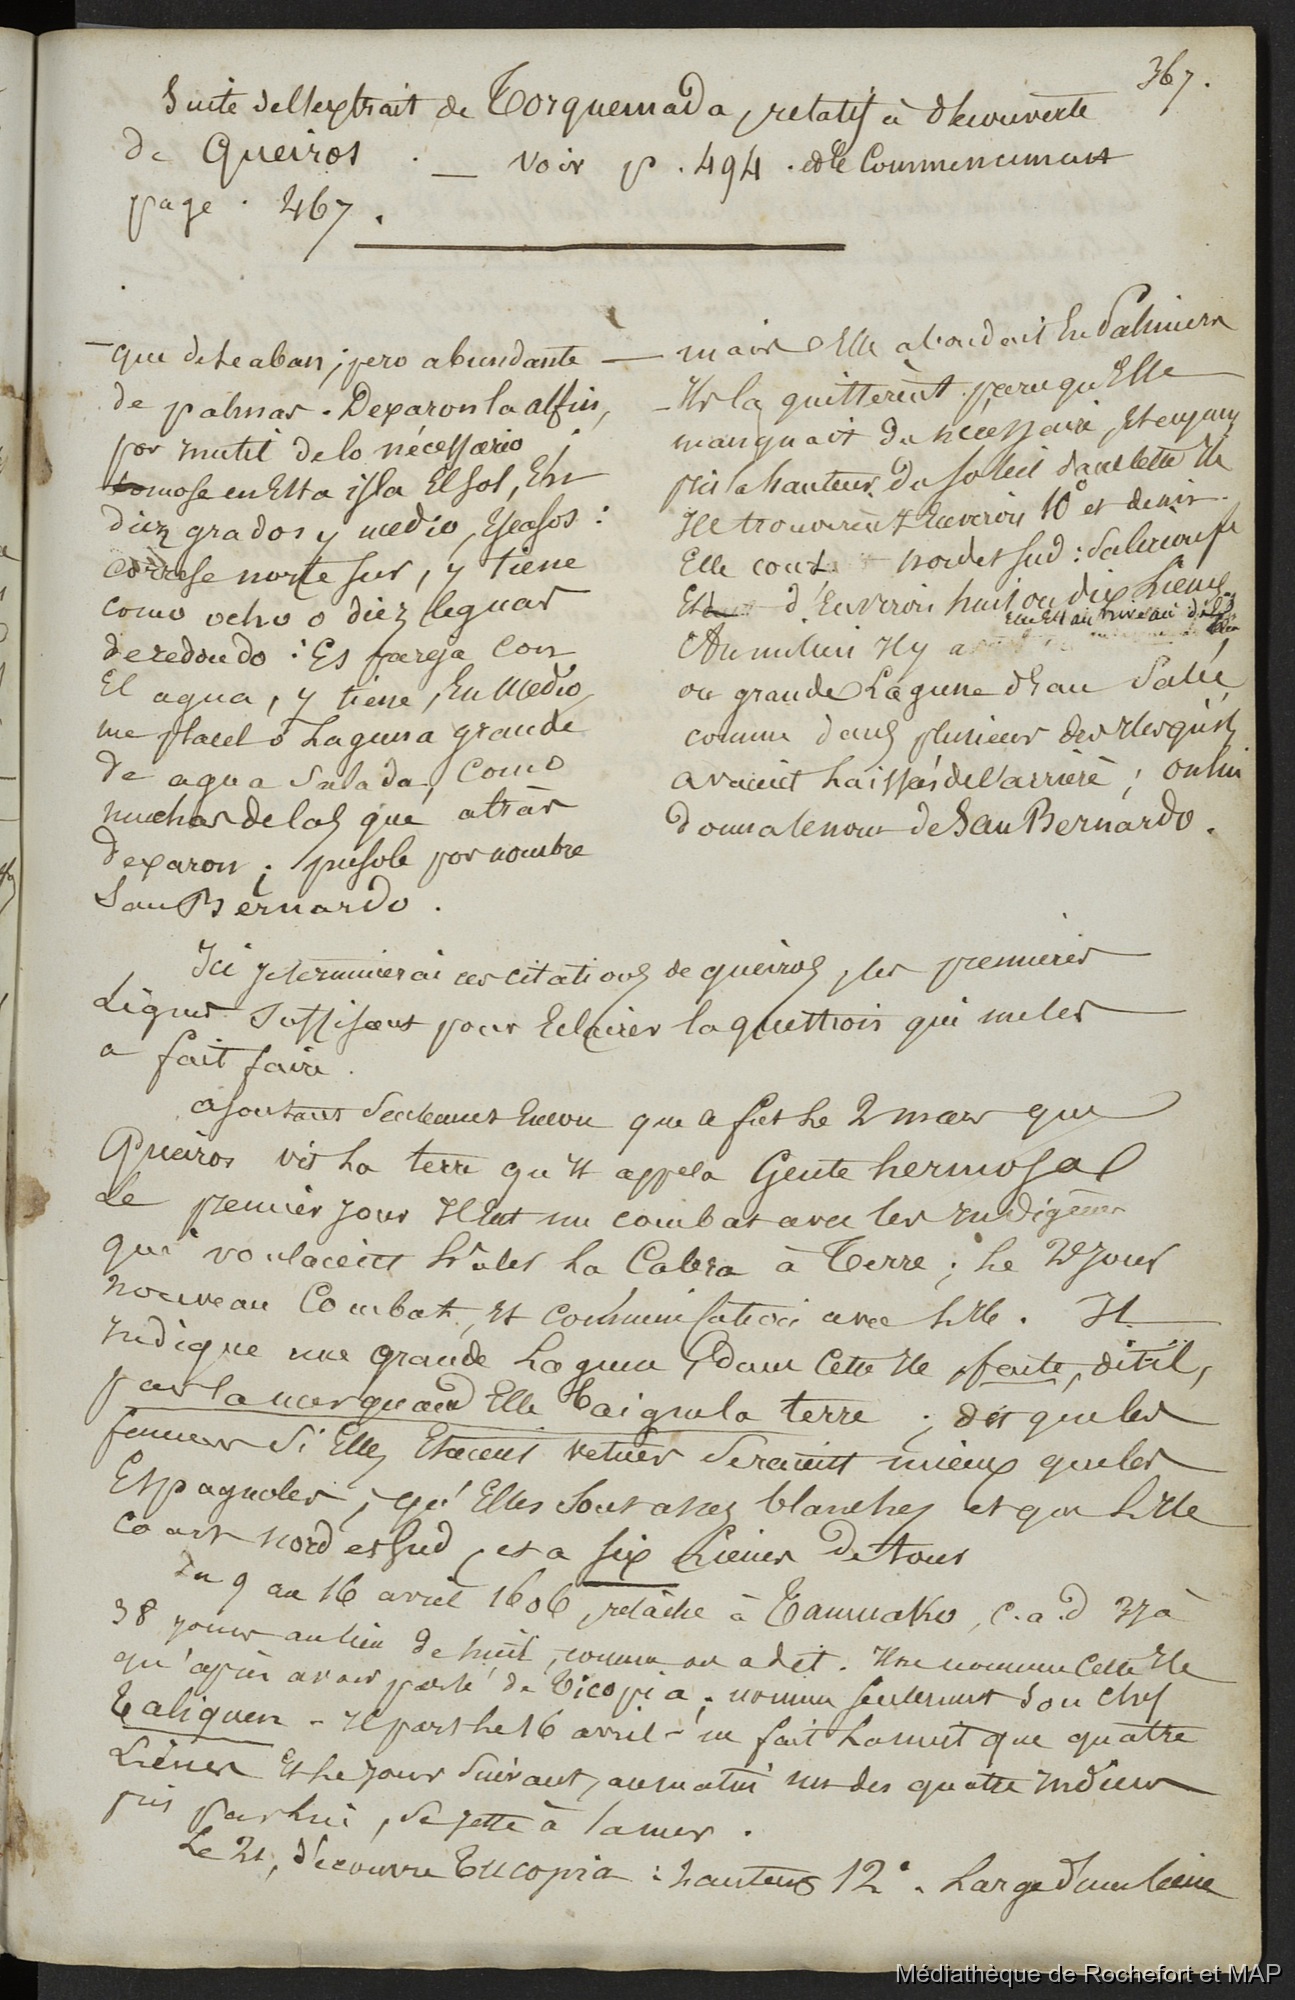 367.
Suite de l'extrait de Torquemada, relatif à découverte
de Queiros . — voir p. 494. et le Commencement
page . 467.
— que deseaban; pero abundante
de palmas. Dexaronla al fin,
por inutil de lo nécessario;
tomose en Esta isla El sol, En
diez grados y medio, Escasos:
correse norte sur, y tiene
como ocho o diez leguas
de redondo: Es pareja Con
El agua, y tiene, En Medio,
me placel o Laguna grande
de agua Salada, como
muchas de las que atràs
dexaron; pusole por nombre
San Bernardo.
— mais Elle abondait En Palmiers
— Ils la quittèrent parce qu'Elle
manquait du nécessaire, Et ayant
pris la hauteur du Soleil dans cette Ile
Ils trouverent Environ 10° et demi.
Elle court nord et sud:
Et d'Environ huit ou dix Lieues
Elle Est au niveau de l'eau
Au milieu Il y a
ou grande Lagune d'Eau Salée,
comme dans plusieurs des Iles qu'ils
avaient Laissées de l'arrière; on lui
donna le nom de San Bernardo.
Ici je terminerai ces citations de queiros, les premières
Lignes Suffisent pour Eclairer la question qui me les
a fait faire.
ajoutons Seulement Encore que ce fut Le 2 mars que
Queiros vit La terre qu'Il appela Gente hermosa
Le premier jour Il Eut un combat avec les Indigènes
qui voulaient hâler La Cabra à Terre; Le 2e jour
nouveau Combat, Et communication avec L'Ile. Il
Indique une grande Lagune dans Cette Ile, faite, dit-il,
par la mer quand Elle baigne la terre; dit que les
femmes Si Elles Etaient vetues Seraient mieux que les
Espagnoles; qu'Elles Sont assez blanches et que L'Ile
court nord et Sud, et a six Lieues De tour
Du 9 au 16 avril 1606, relâche à Taumako, c.a.d 37 à
38 jours au lieu de huit, comme on a dit. Il ne nomme cette Ile
qu'après avoir parlé de Ticopia; nomme seulement Son Chef
Taliquen - Il part Le 16 avril - ne fait La nuit que quatre
Lieues Et Le jour Suivant, au matin un des quatre Indiens
pris par Lui, Se jette à la mer.
Le 21, découvre Tucopia: hauteur 12°. Large d'une Lieue
Médiathèque de Rochefort et MAP